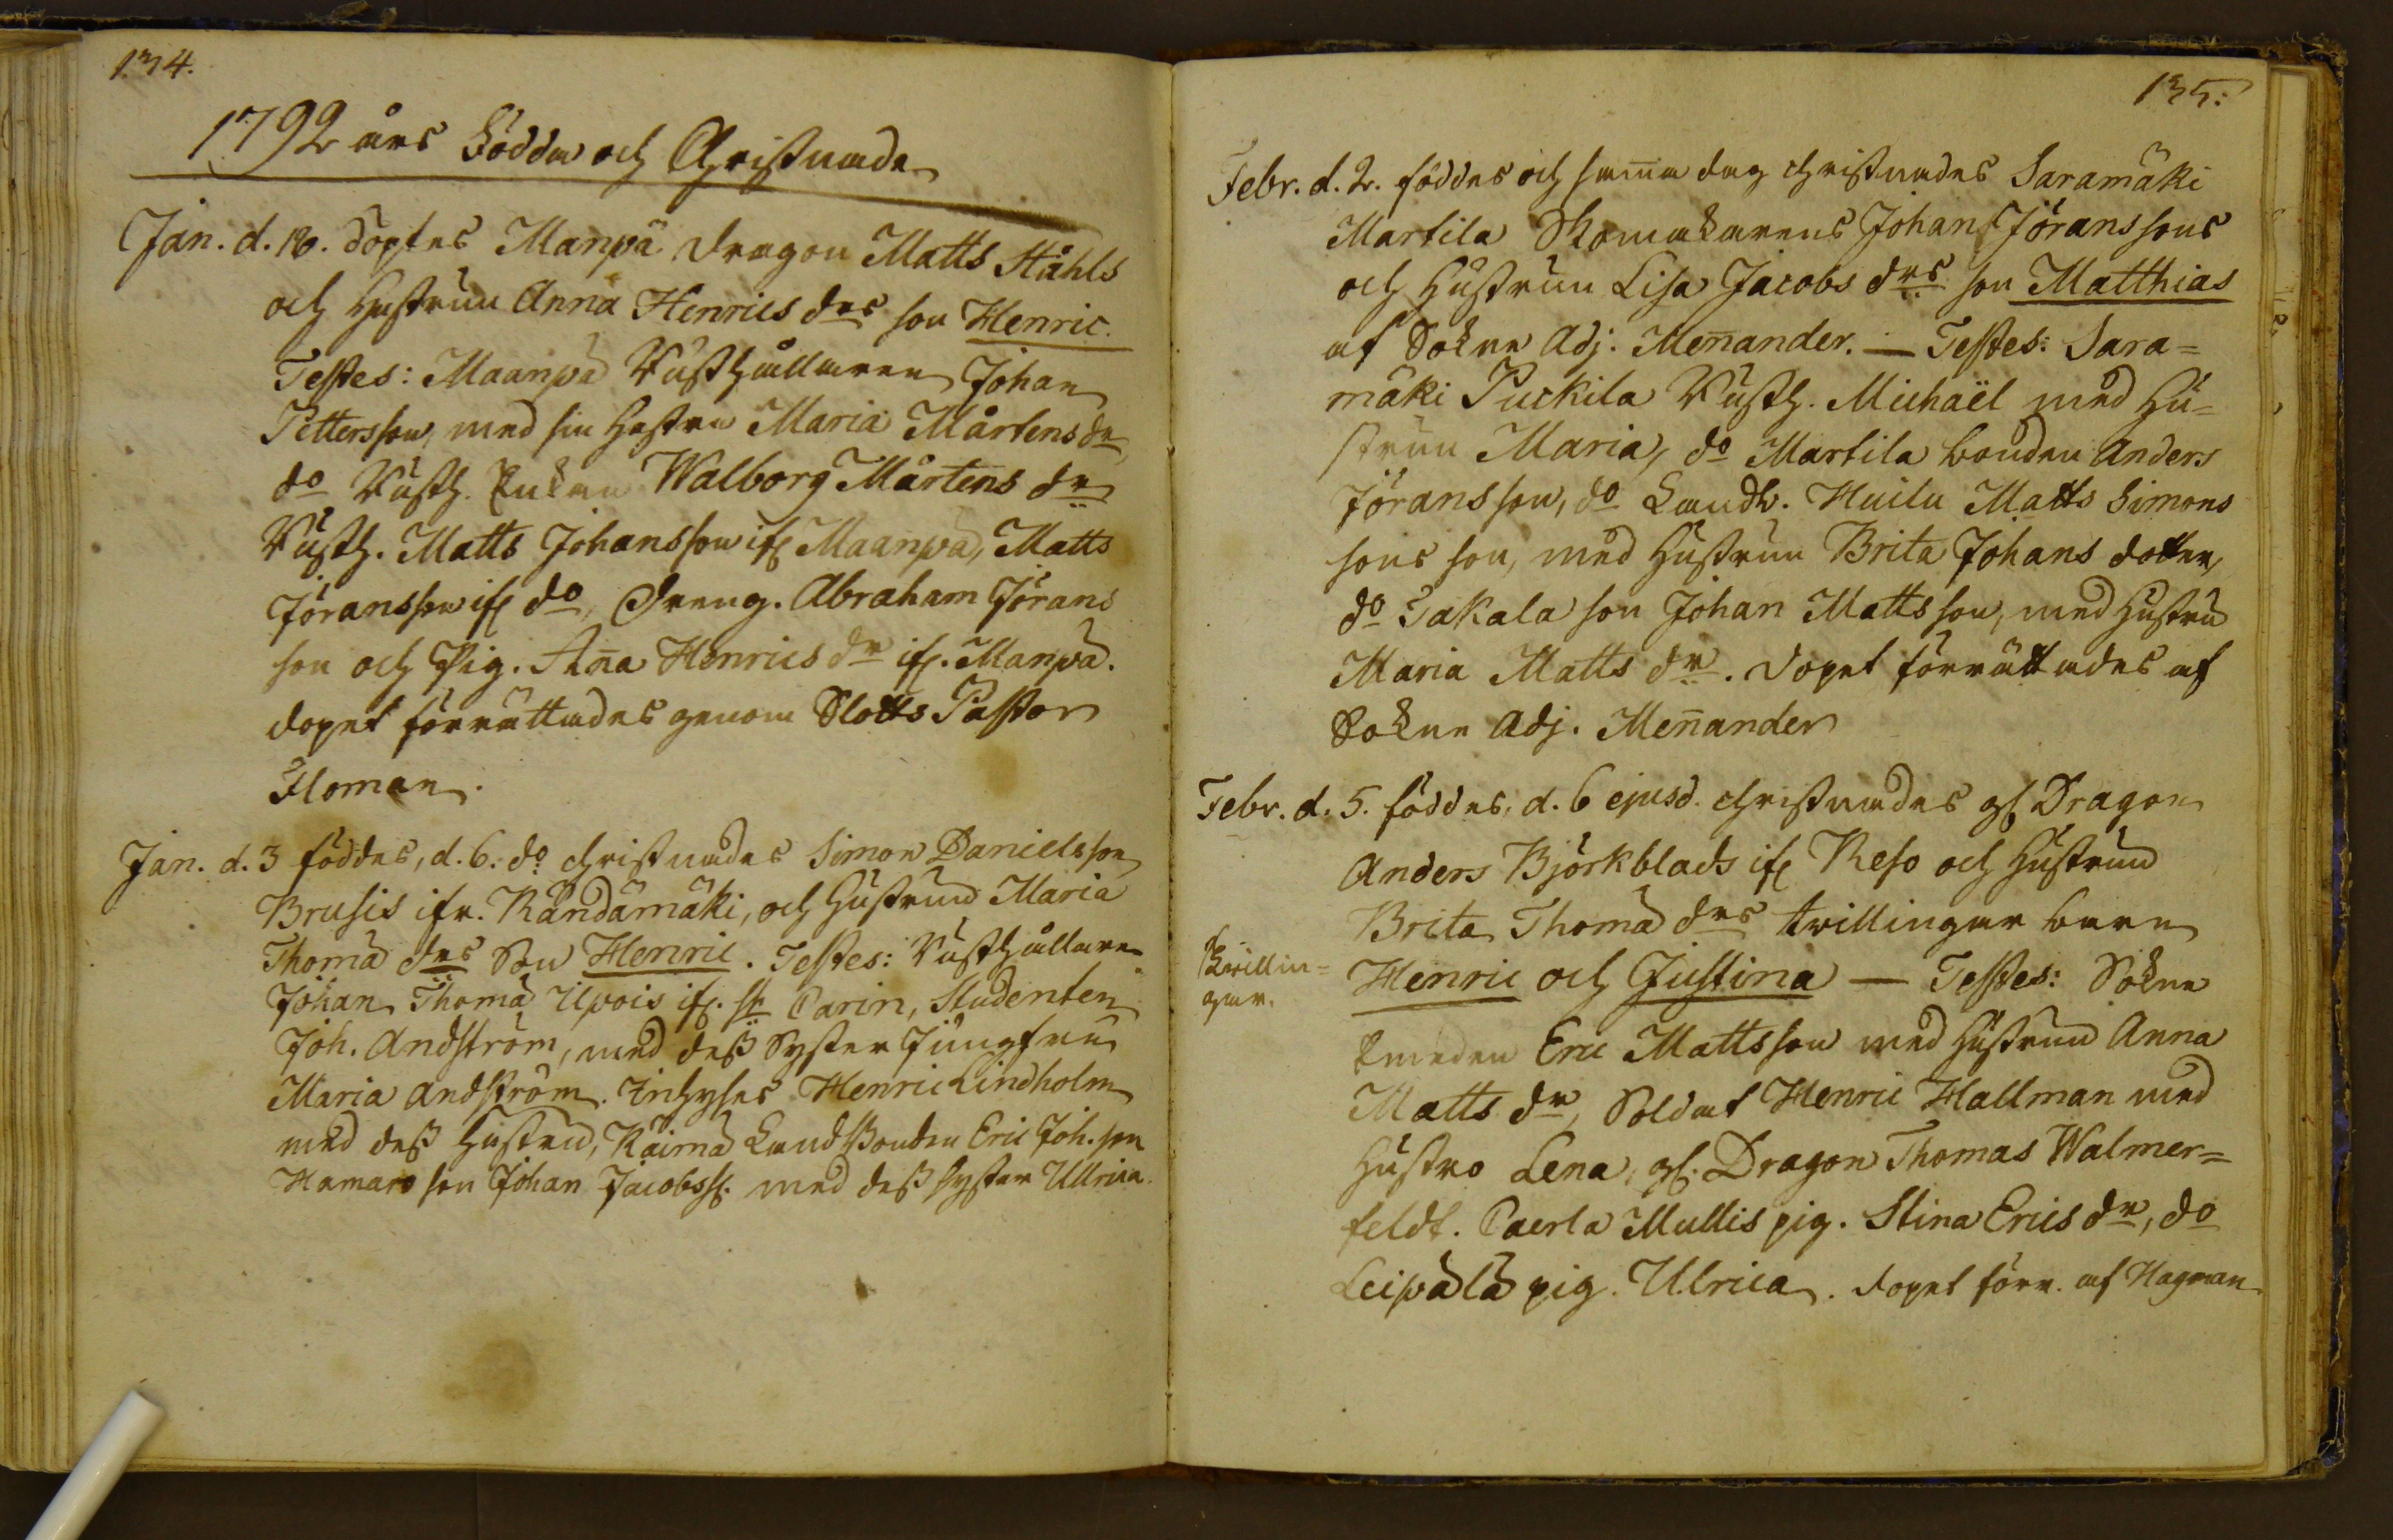 134.
1792 års Födda och Christnade
Jan. d. 10. döptes Manpä Dragon Matts Ståhls
och Hustrun Anna Henrics drs son Henric.
Testes: Maanpä Rusthållaren Johan
Pettersson, med sin Hustru Maria Mårtens dr
do Rusth. Enkan Walborg Mårtens dr
Rusth. Matts Johansson ifr Maanpä, Matts
Jöransson ifr do, Dräng. Abraham Jörans
son och Pig. Anna Henrics dr ifr. Manpä.
dopet förrättades genom Slotts Pastor
Floman.
Jan. d. 3 föddes, d. 6. do christnades Simon Danielsson
Brusis ifr. Rändämäki, och Hustrund Maria
Thomä drs Son Henric. Testes: Rusthållaren
Johan Thomä Upois ifr. St Carin, Studenten
Joh. Andström, med dess Syster Jungfru
Maria Andström. Inhyses Henric Lindholm
med dess Hustru, Räimä Landbonden Eric Joh. son
Hamaro son Johan Jacobss. med dess syster Ullrica.
135.
Febr. d. 2. föddes och samma dag christnades Saramäki
Martila Skomakarens Johan Jöranssons
och Hustrun Lisa Jacobs drs son Matthias
af Sokne Adj. Menander. — Testes: Sara=
mäki Puckila Rusth. Michaël med Hu=
strun Maria, do Martila bonden Anders
Jöransson, do Landb. Huilu Matts Simons
sons son, med Hustrun Brita Johans dotter,
do Takala son Johan Mattsson, med Hustru
Maria Matts dr. Dopet förrättades af
Sokne Adj. Menander
Febr. d. 5. föddes, d. 6 ejusd. christnades gl Dragon
Anders Björkblads ifr Reso och Hustrund
Brita Thomä drs twillingar barn
Twillin=
gar.
Henric och Justina — Testes: Sokne
smeden Eric Mattsson med Hustrund Anna
Matts dr, Soldat Henric Hallman med
Hustro Lena, gl. Dragon Thomas Walmer=
feldt. Caerla Mullis pig. Stina Erics dr, do
Leipälä pig. Ulrica. dopet förr. af Hagman